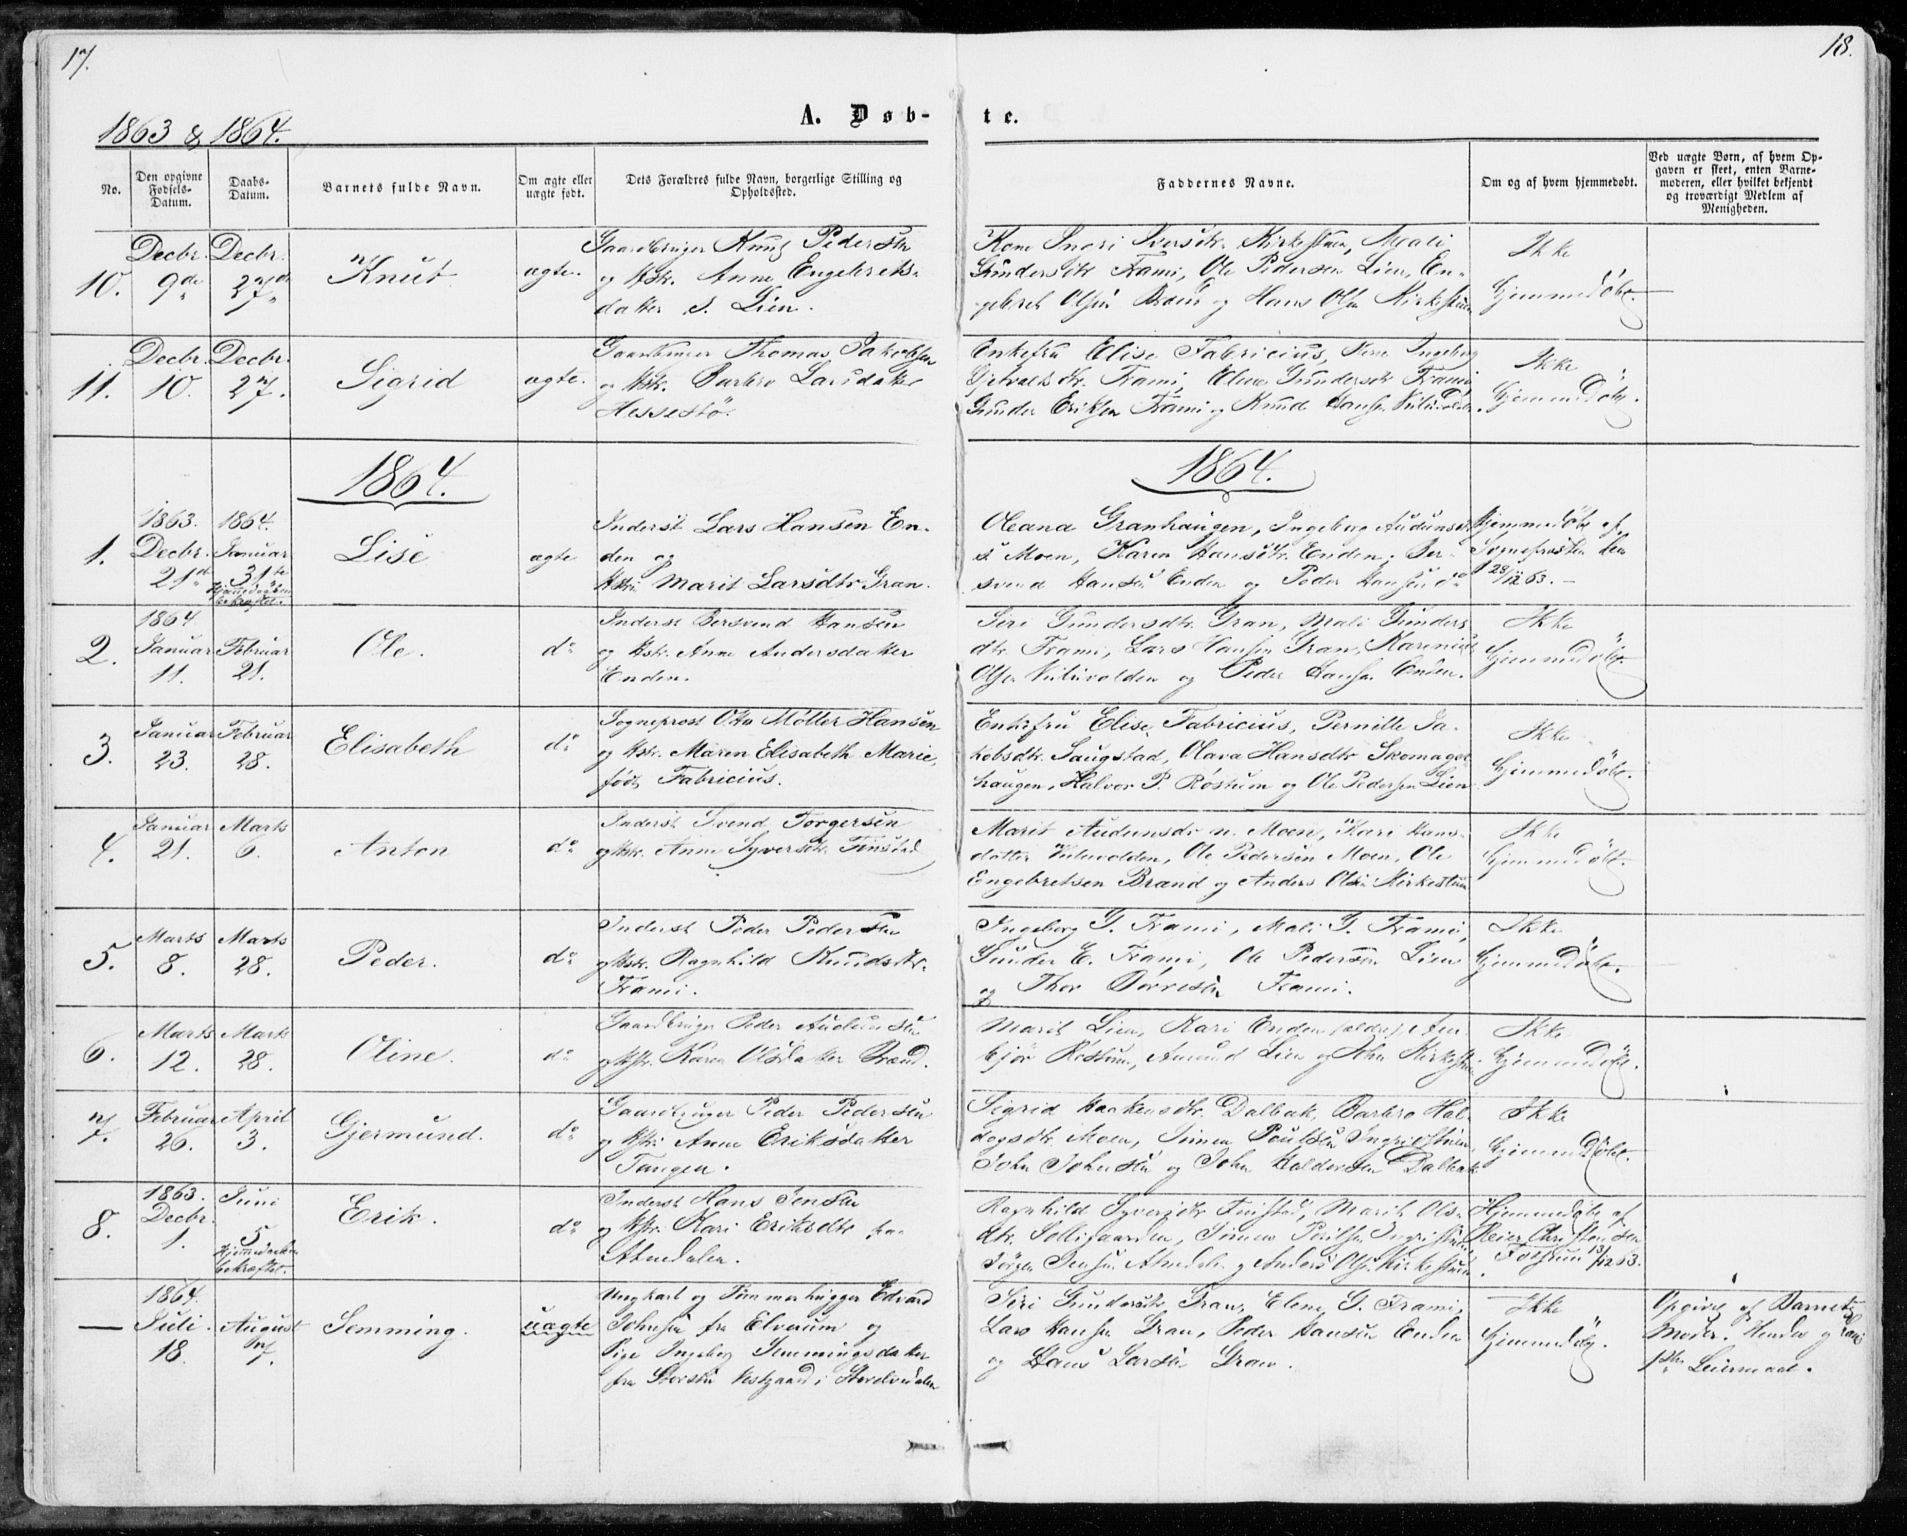 17.
18.
1863 & 1864.
A. Døb-
te.
No.
Den opgivne Fødsels-Datum.
Daabs-Datum.
Barnets fulde Navn.
Om ægte eller uægte født.
Dets Forældres fulde Navn, borgerlige Stilling og Opholdssted.
Faddernes Navne.
Om og af hvem hjemmedøbt.
Ved uægte Børn, af hvem Opgaven er skeet, enten Barnemoderen, eller hvilket bekjendt og troværdigt Medlem af Menigheden.
10.
Decbr. 9de
Decbr. 27de
Knut
ægte.
Gaardbruger Knut Pedersen
og Hstr. Anne Engebrets-
datter S. Lien.
Kone Inari Iversdtr. Kirkestuen, Mali
Gundersdtr Frami, Ole Pedersen Lien, En-
gebret Olsen Brænd og Hans Olsen Kirkestuen
Ikke
Hjemmedøbt.
11.
Decbr. 10.
Decbr. 27.
Sigrid
ægte.
Gaardbruger Thomas Jakobsen
og Hstr. Barbro Larsdatter
Messeltø.
Enkefru Elise Fabricius, Kone Ingeborg
Frami, Elene Gundersdtr Frami
Gunder Eriksen Frami og Knud Hansen
Ikke
Hjemmedøbt.
1864.
1864.
1.
1863.
Decbr.
21de
1864.
Januar
31te
Hjemmedaaben
bekræftet.
Lise
ægte
Inderst Lars Hansen En-
den og
Hstr. Marit Larsdtr Gran.
Oleana Granhaugen, Ingeborg Audunsdtr
s. Moen, Karen Hansdtr. Enden, Ber-
svend Hansen Enden og Peder Hansen do
Hjemmedøbt af
Sogneprosten den
28/12 63.
2.
1864
Januar
11.
Februar
21.
Ole.
do
Inderst Bersvend Hansen
og Hstr. Anne Andersdatter
Enden.
Siri Gundersdtr. Gran, Mali Gunders-
dtr. Frami, Lars Hansen Gran, Karenius
Olsen og Peder Hansen Enden.
Ikke
Hjemmedøbt
3.
Januar
23.
Februar
28.
Elisabeth
do
Sogneprost Otto Møller Hansen
og Hstr. Maren Elisabeth Marie,
født Fabricius.
Enkefru Elise Fabricius, Pernille Ja-
kobsdtr. Saugstad, Olava Hansdtr Skomager-
haugen, Halvor P. Røstum og Ole Pedersen Lien
Ikke
Hjemmedøbt.
4.
Januar
21.
Marts
6.
Anton
do
Inderst Svend Torgersen
og Hstr. Anne Syversdtr. Finstad
Marit Audunsdtr n. Moen, Kari Hans-
datter, Ole Pedersen Moen, Ole
Engebretsen Brænd og Anders Olsen Kirkestuen
Ikke
Hjemmedøbt.
5.
Marts
8.
Marts
28.
Peder.
do
Inderst Peder Pedersen
og Hstr. Ragnhild Knudsdtr.
Frami.
Ingeborg G. Frami, Mali G. Frami,
Gunder E. Frami, Ole Pedersen Lien
og Thor Børresen Frami.
Ikke
Hjemmedøbt.
6.
Marts
12.
Marts
28.
Oline.
do
Gaardbruger Peder Audunsen
og Hstr. Karen Olsdatter Brænd.
Marit Lien, Kari Enden (ældre), Am-
bjør Røstum, Amund Lien og John Kirkestuen
Ikke
Hjemmedøbt.
7.
Februar
26.
April
3.
Gjermund.
do
Gaardbruger Peder Pedersen
og Hstr. Anne Eriksdatter
Tangen.
Sigrid Haakensdtr. Dalbak, Barbro Hal-
dogsdtr. Moen, Simen Poulsen Ingristuen,
John Johnsen og John Haldorsen Dalbak
Ikke
Hjemmedøbt.
8.
1863.
Decbr.
1.
Juni
5
Hjemmedaaben
bekræftet.
Erik.
do
Inderst Hans Jensen
og Hstr. Kari Eriksdtr fra
Atnedalen.
Ragnhild Syversdtr Finstad, Marit Ols-
dtr. Sollisgaarden, Simen Poulsen Ingristuen
Jørgen Jensen Atnedalen og Anders Ols. Kirkestuen
Hjemmedøbt af
Reier Christensen
13/12 63.
—
1864.
Juli
18.
August
7.
Semming.
uægte
Ungkarl og Tømmerhugger Edvard
Johnsen fra Elverum og
Pige Ingeborg Semmingsdatter
fra Storstu Vestgaard i Storelvdalen
Siri Gundersdtr. Gran, Elene G. Frami,
Lars Hansen Gran, Peder Hansen Enden
og Hans Larsen Gran.
Ikke
Hjemmedøbt.
Opgivet af Barnets
Moder. Hendes og hans
1ste Leiermaal.